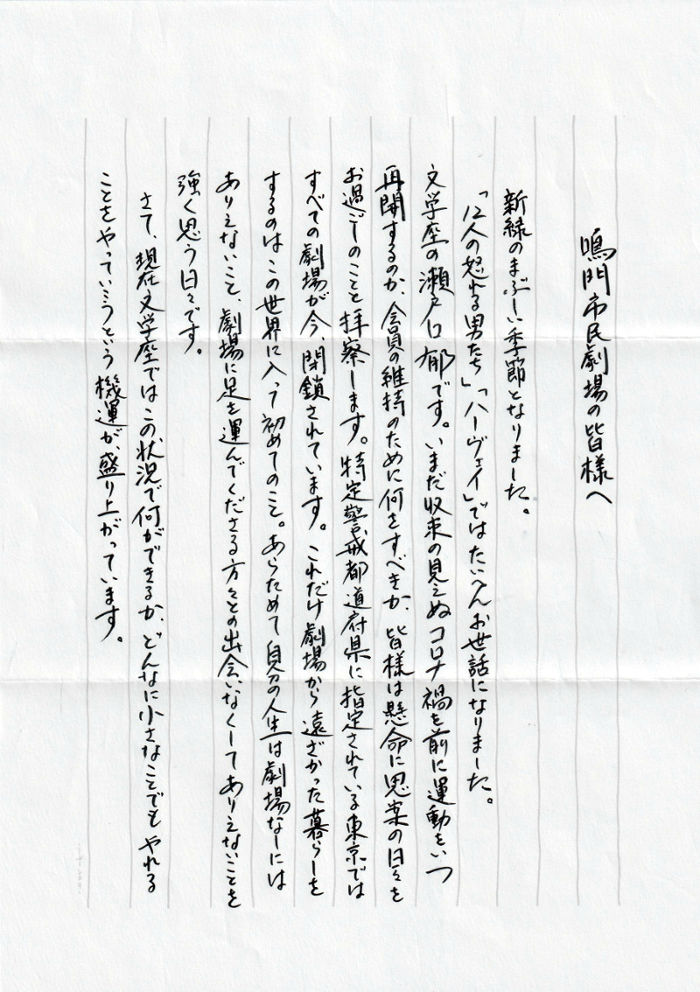 鳴門市民劇場の皆様へ
新緑のまぶしい季節となりました。
「12人の怒れる男たち」「ハーヴェイ」ではたいへんお世話になりました。
文学座の瀬戸口郁です。いまだ収束の見えぬコロナ禍を前に運動をいつ
再開するのか、会員の維持のために何をすべきか、皆様は懸命に思案の日々を
お過ごしのことと拝察します。特定警戒都道府県に指定されている東京では
すべての劇場が今、閉鎖されています。これだけ劇場から遠ざかった暮らしを
するのはこの世界に入って初めてのこと。あらためて自分の人生は劇場なしには
ありえないこと、劇場に足を運んでくださる方々との出会いなくしてありえないことを
強く思う日々です。
さて、現在文学座ではこの状況で何ができるか、どんなに小さなことでもやれる
ことをやっていこうという機運が盛り上がっています。